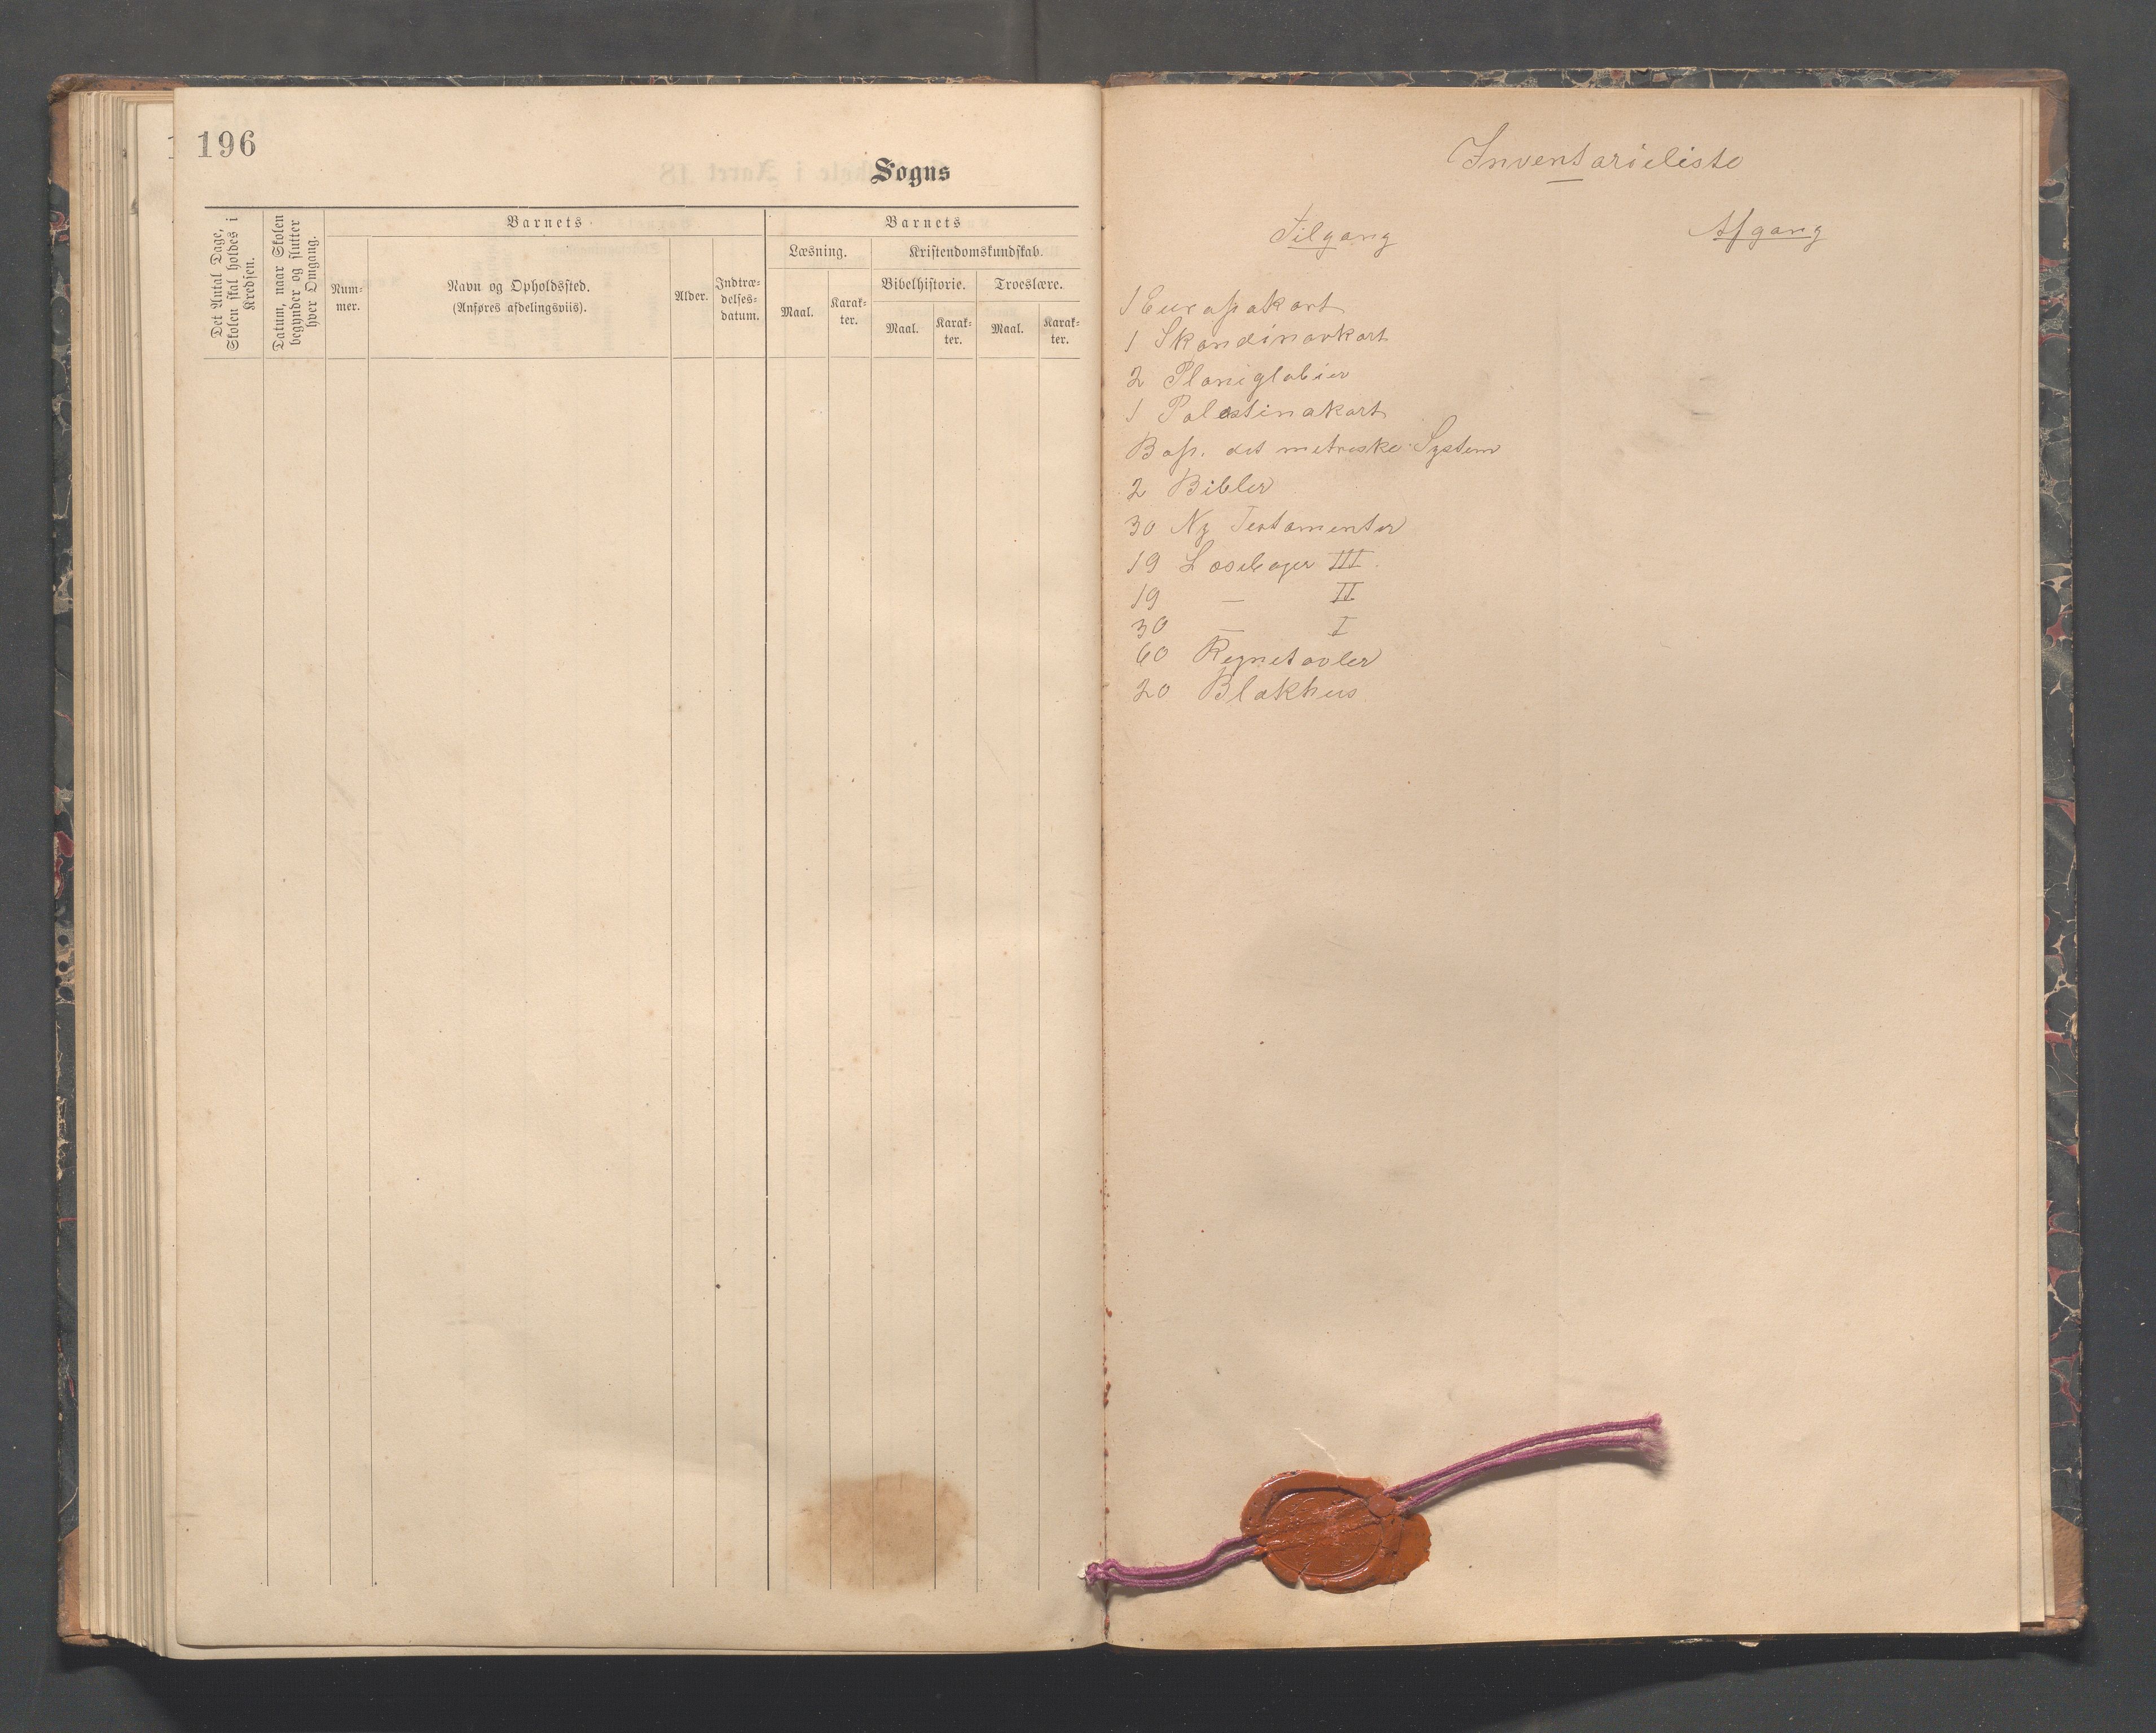 196
Sogns
Det Antal Dage,
Skolen skal holdes i
Kredsen.
Datum, naar Skolen
begynder og slutter
hver Omgang.
Barnets
Num-
mer.
Navn og Opholdssted.
(Anføres afdelingsviis).
Alder.
Indtræ-
delses-
datum.
Barnets
Læsning.
Maal.
Karak-
ter.
Kristendomskundskab.
Bibelhistorie.
Maal.
Karak-
ter.
Troeslære.
Maal.
Karak-
ter.
Inventarieliste
Tilgang
Afgang
1 Europakart
1 Skandinavkart
2 Planiglobier
1 Palestinakart
det metriske System
2 Bibler
30 Ny Testamenter
19 Læsebøger III
19 — II
30 — I
60 Regnetavler
20 Blækhus